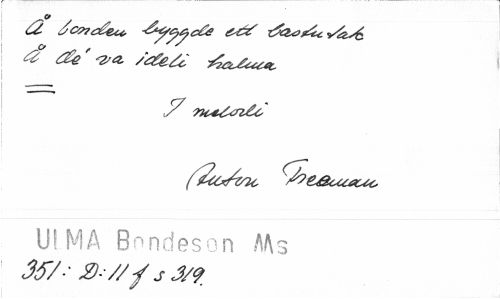 Å bonden byggde ett bastutak
Å dé va ideli halma
I melodi
Anton Freeman
ULMA Bondeson Ms
351: D:11 f s 319.